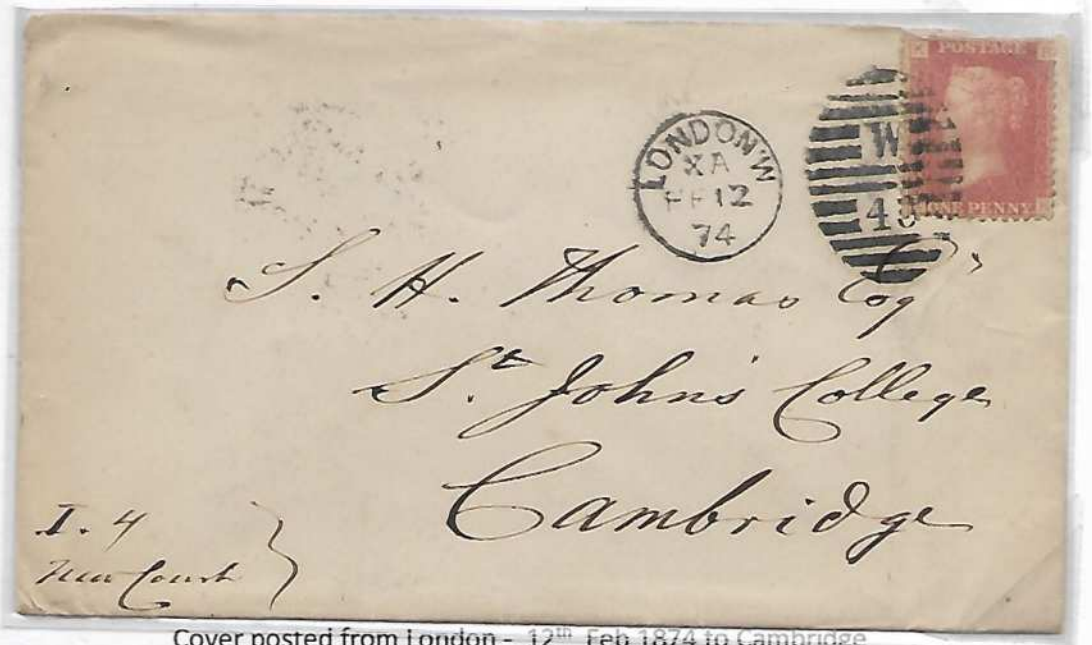 POSTAGE
ONE PENNY
LONDON·W
XA
FE 12
74
W
S. H. Thomas Esq
St. John's College
Cambridge
I. 4
New Court
Cover posted from London - 12th Feb 1874 to Cambridge